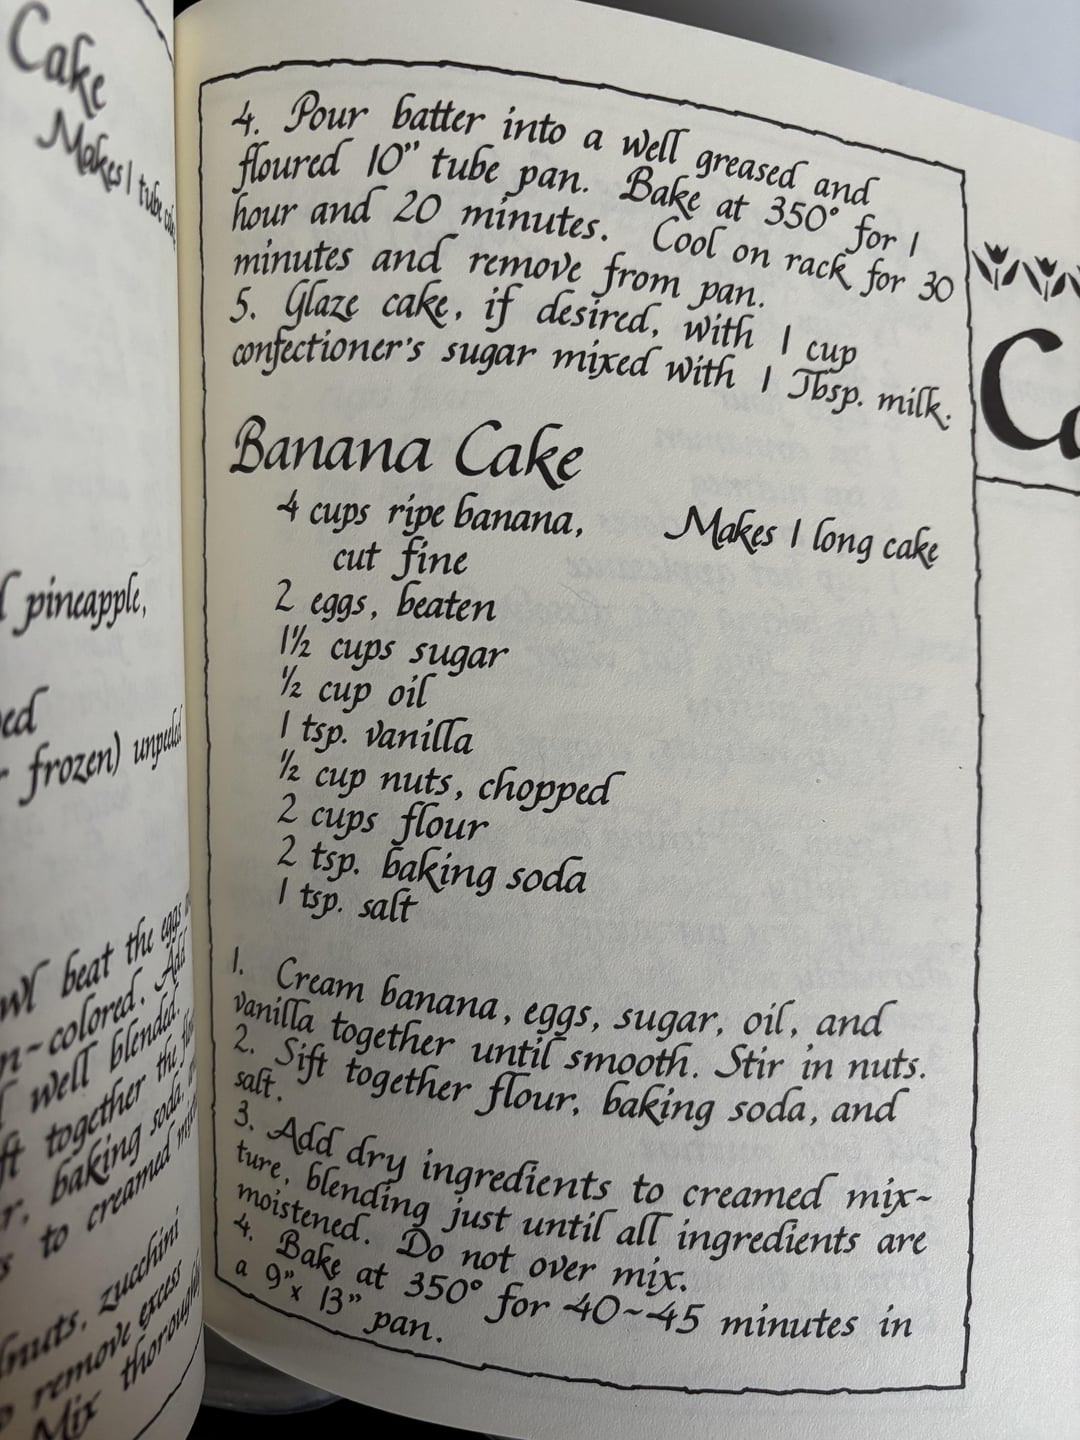 Cake
Makes 1 tube
pineapple,
frozen) unpeeled
beat the eggs
colored. Add
well blended.
together the
baking soda,
to creamed
zucchini
remove excess
Mix thoroughly
4. Pour batter into a well greased and
floured 10" tube pan. Bake at 350° for 1
hour and 20 minutes. Cool on rack for 30
minutes and remove from pan.
5. Glaze cake, if desired, with 1 cup
confectioner's sugar mixed with 1 Tbsp. milk.
Banana Cake
4 cups ripe banana,
cut fine
Makes 1 long cake
2 eggs, beaten
1½ cups sugar
½ cup oil
1 tsp. vanilla
½ cup nuts, chopped
2 cups flour
2 tsp. baking soda
1 tsp. salt
1. Cream banana, eggs, sugar, oil, and
vanilla together until smooth. Stir in nuts.
2. Sift together flour, baking soda, and
salt.
3. Add dry ingredients to creamed mix-
ture, blending just until all ingredients are
moistened. Do not over mix.
4. Bake at 350° for 40~45 minutes in
a 9" x 13" pan.